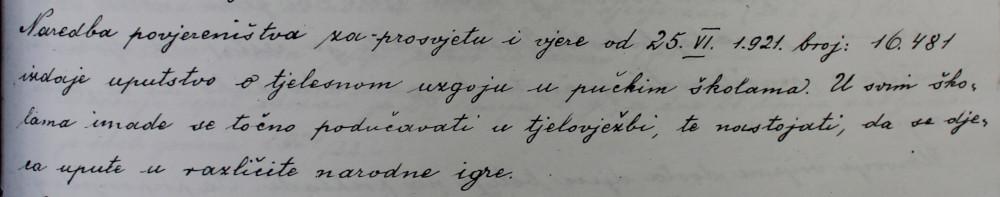 Naredba povjereništva za prosvjetu i vjere od 25. VI. 1.921. broj: 16.481
izdaje uputstvo o tjelesnom uzgoju u pučkim školama. U svim ško-
lama imade se točno podučavati u tjelovježbi, te nastojati, da se dje-
ca upute u različite narodne igre.